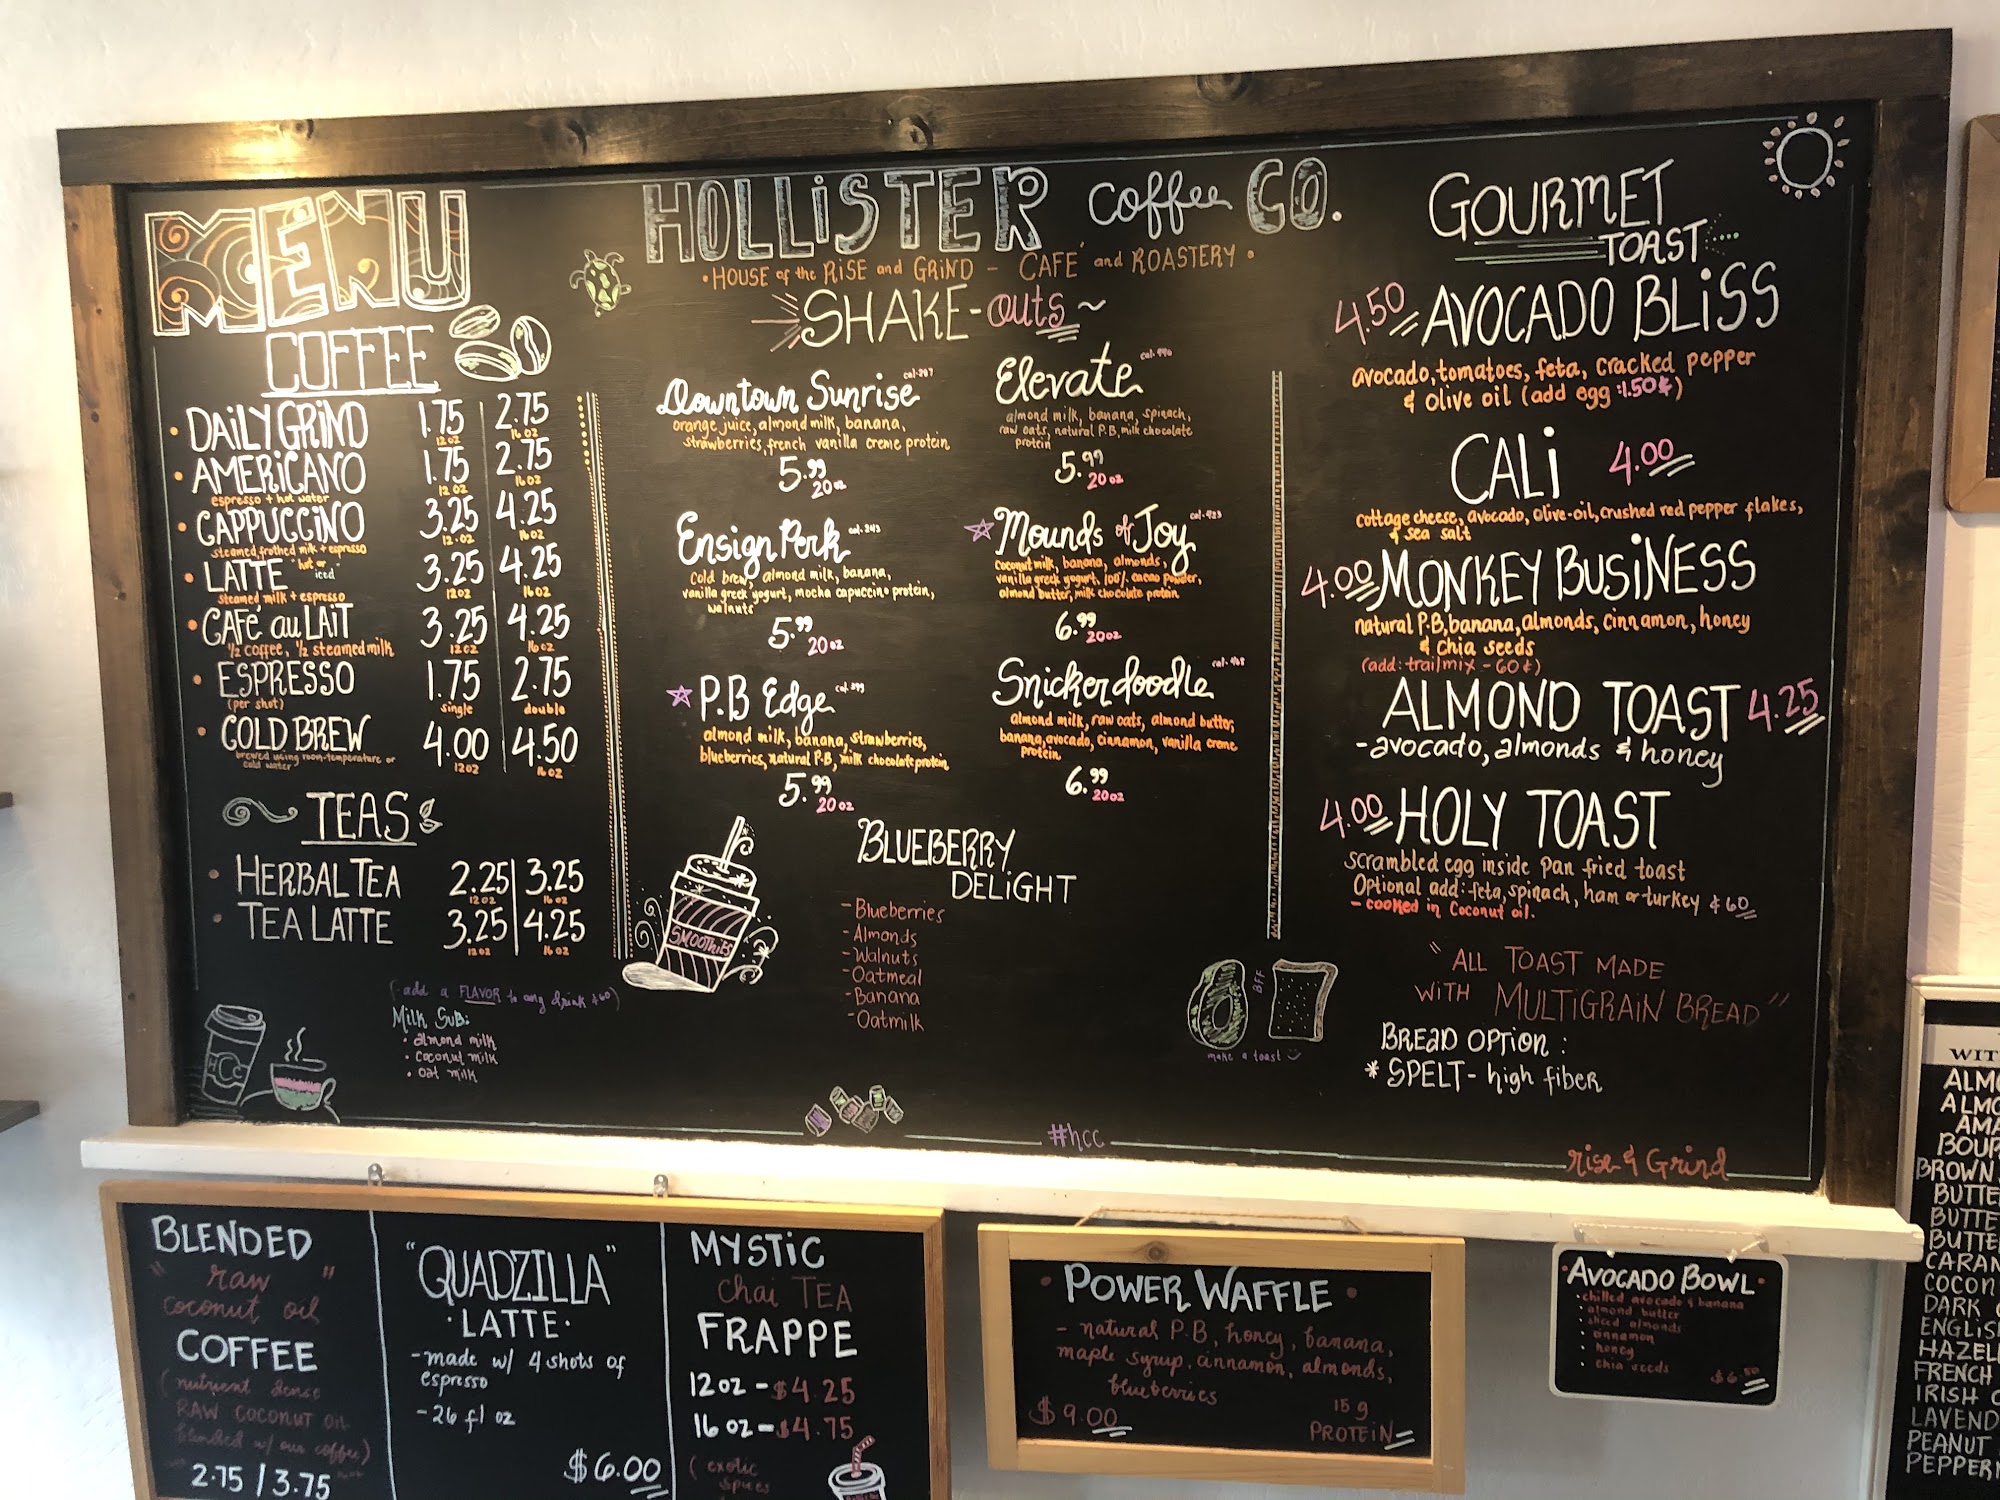 MENU
COFFEE
• DAILY GRIND 1.75 2.75
12 oz 16 oz
• AMERICANO 1.75 2.75
espresso + hot water 12 oz 16 oz
• CAPPUCCINO 3.25 4.25
steamed, frothed milk + espresso 12 oz 16 oz
• LATTE "hot or iced" 3.25 4.25
steamed milk + espresso 12 oz 16 oz
• CAFÉ au LAIT 3.25 4.25
½ coffee, ½ steamed milk 12 oz 16 oz
• ESPRESSO 1.75 2.75
(per shot) single double
• COLD BREW 4.00 4.50
brewed using room-temperature or
cold water 12 oz 16 oz
TEAS
• HERBAL TEA 2.25 3.25
12 oz 16 oz
• TEA LATTE 3.25 4.25
12 oz 16 oz
(add a FLAVOR to any drink $.60)
MILK SUB:
• almond milk
• coconut milk
• oat milk
HCC
HOLLISTER Coffee CO.
• HOUSE of the RISE and GRIND - CAFÉ and ROASTERY •
SHAKE-outs ~
Downtown Sunrise cal. 287
orange juice, almond milk, banana,
strawberries, french vanilla creme protein
5.99
20 oz
Ensign Perk cal. 243
Cold brew, almond milk, banana,
vanilla greek yogurt, mocha capuccino protein,
walnuts
5.99
20 oz
P.B Edge cal. 399
almond milk, banana, strawberries,
blueberries, natural P.B, milk chocolate protein
5.99
20 oz
SMOOTHIES
Elevate cal. 440
almond milk, banana, spinach,
raw oats, natural P.B, milk chocolate
protein
5.99
20 oz
Mounds of Joy cal. 423
coconut milk, banana, almonds,
vanilla greek yogurt, 100% cacao powder,
almond butter, milk chocolate protein
6.99
20 oz
Snickerdoodle cal. 468
almond milk, raw oats, almond butter,
banana, avocado, cinnamon, vanilla creme
protein
6.99
20 oz
BLUEBERRY
DELIGHT
- Blueberries
- Almonds
- Walnuts
- Oatmeal
- Banana
- Oatmilk
#hcc
GOURMET
TOAST
4.50 AVOCADO BLISS
avocado, tomatoes, feta, cracked pepper
& olive oil (add egg :1.50¢)
CALi 4.00
cottage cheese, avocado, olive-oil, crushed red pepper flakes,
& sea salt
4.00 MONKEY BUSINESS
natural P.B, banana, almonds, cinnamon, honey
& chia seeds
(add: trailmix - 60¢)
ALMOND TOAST 4.25
-avocado, almonds & honey
4.00 HOLY TOAST
scrambled egg inside pan fried toast
Optional add: feta, spinach, ham or turkey $.60
- cooked in Coconut oil.
"ALL TOAST MADE
WITH MULTIGRAIN BREAD"
BFF
make a toast
BREAD OPTION :
* SPELT - high fiber
rise & Grind
BLENDED
"raw"
coconut oil
COFFEE
(nutrient dense
RAW coconut oil
blended w/ our coffee)
2.75 / 3.75
"QUADZILLA"
• LATTE •
- made w/ 4 shots of
espresso
- 26 fl oz
$6.00
MYSTIC
Chai TEA
FRAPPE
12 oz - $4.25
16 oz - $4.75
(exotic
spices
• POWER WAFFLE •
- natural P.B, honey, banana,
maple syrup, cinnamon, almonds,
blueberries
$9.00 15 g
PROTEIN
• AVOCADO BOWL •
• chilled avocado & banana
• almond butter
• sliced almonds
• cinnamon
• honey
• chia seeds
$6.50
WIT
ALMO
ALMO
AMA
BOUR
BROWN
BUTTE
BUTTE
BUTTE
CARAM
COCON
DARK
ENGLIS
HAZEL
FRENCH
IRISH C
LAVEND
PEANUT
PEPPERM